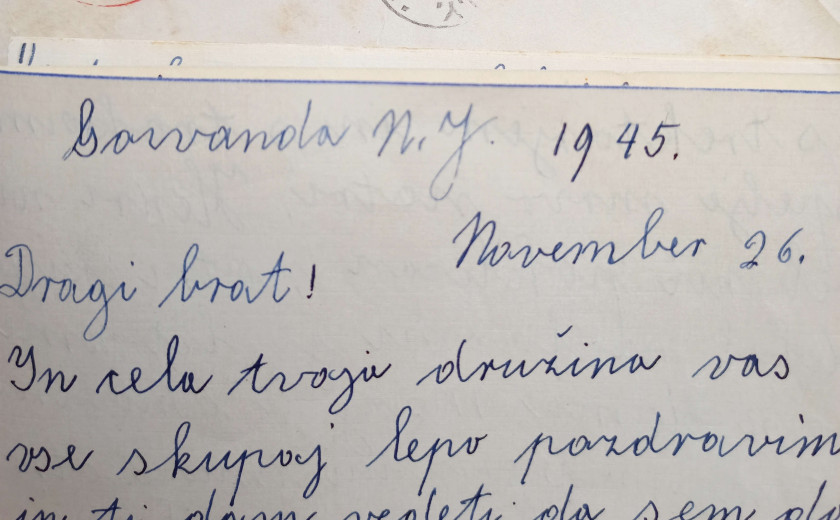 Gowanda N.Y. 1945.
November 26.
Dragi brat!
In cela tvoja družina vas
vse skupaj lepo pozdravim
in ti dam vedeti da sem